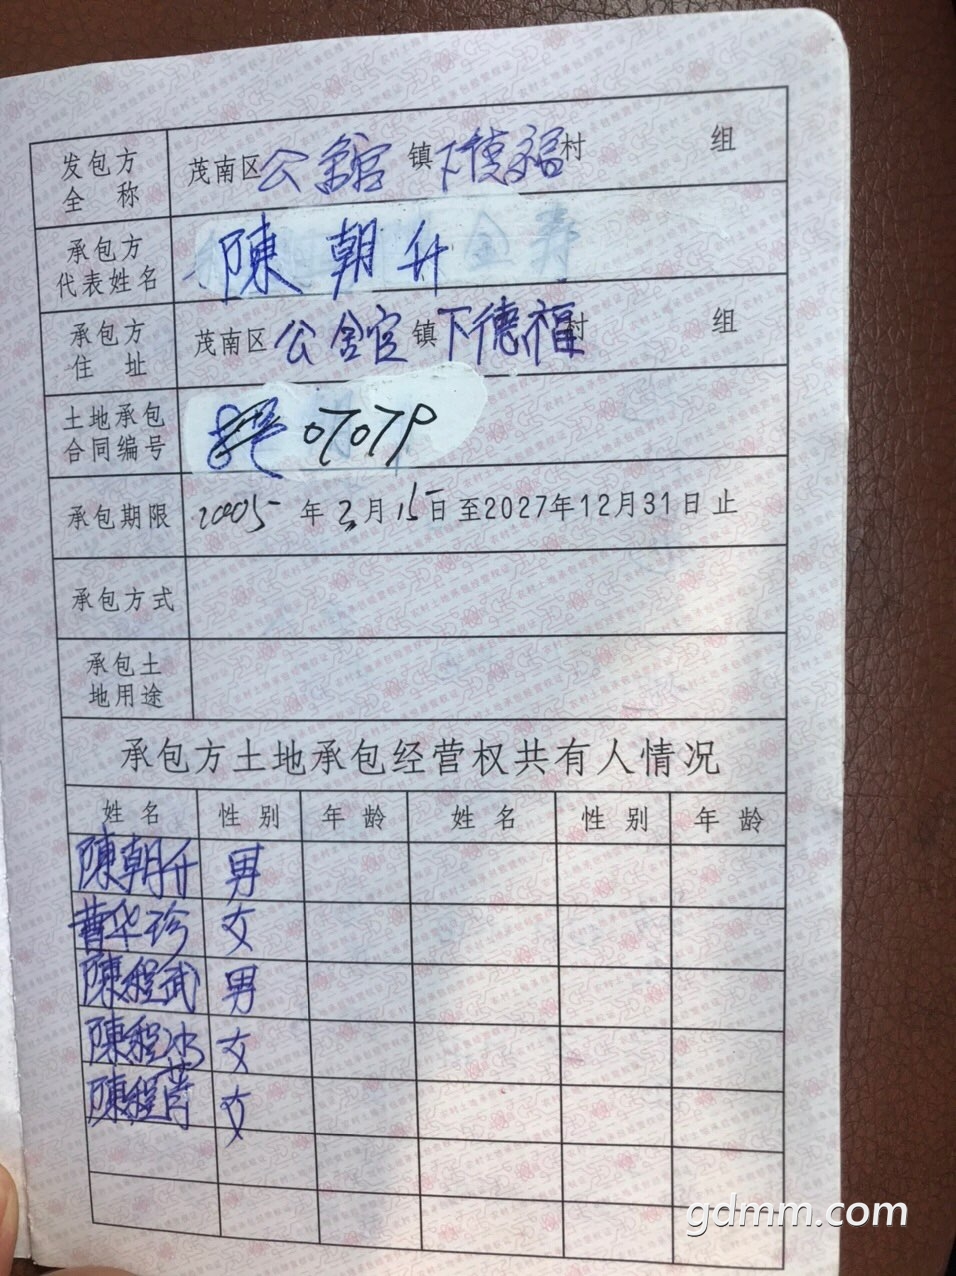 发包方全称 茂南区公舘镇下德福村 组
承包方代表姓名 陳朝升
承包方住址 茂南区公舘镇下德福村 组
土地承包合同编号 07079
承包期限 2005年3月15日至2027年12月31日止
承包方式
承包土地用途
承包方土地承包经营权共有人情况
姓名 性别 年龄 姓名 性别 年龄
陳朝升 男
曹华珍 女
陳程武 男
陳程冰 女
陳程菁 女
gdmm.com